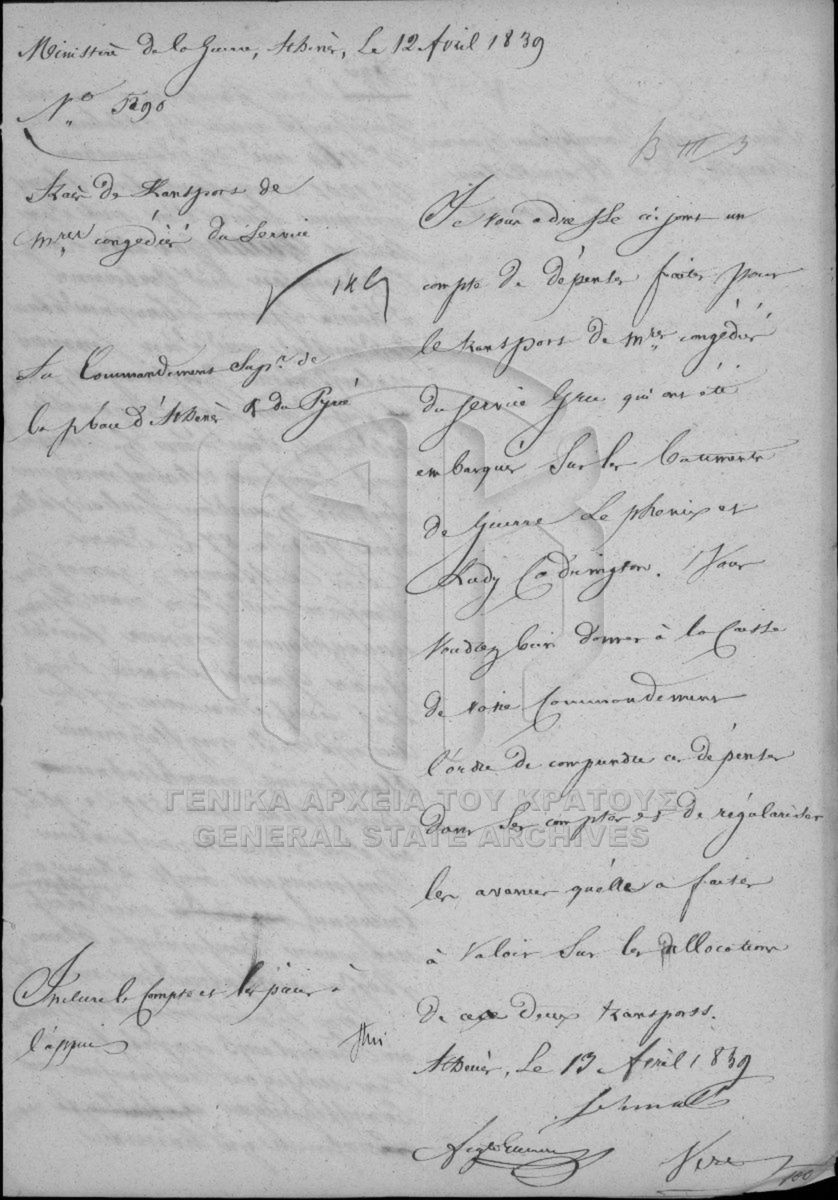 Ministère de la Guerre, Athènes, Le 12 Avril 1839
N° 5290
B III 3
Frais de transport de
mres congédiés du Service
Au Commandement Supr. de
la place d'Athènes & du Pyrée
Je vous adresse ci joint un
compte de dépenses faites pour
le transport de mres congédiés
du service Grec qui ont été
embarqués sur les batiments
de Guerre Le phenix et
Lady Codrington. Vous
voudrez bien donner à la Caisse
de votre Commandement
l'ordre de comprendre ces dépenses
dans ses comptes et de régulariser
les avances quélle a faites
à valoir sur les allocations
de ces deux transports.
Inclus le Compte et les pièces à
l'appui
Athènes, Le 13 Avril 1839
Schmaltz
100
ΓΕΝΙΚΑ ΑΡΧΕΙΑ ΤΟΥ ΚΡΑΤΟΥΣ
GENERAL STATE ARCHIVES